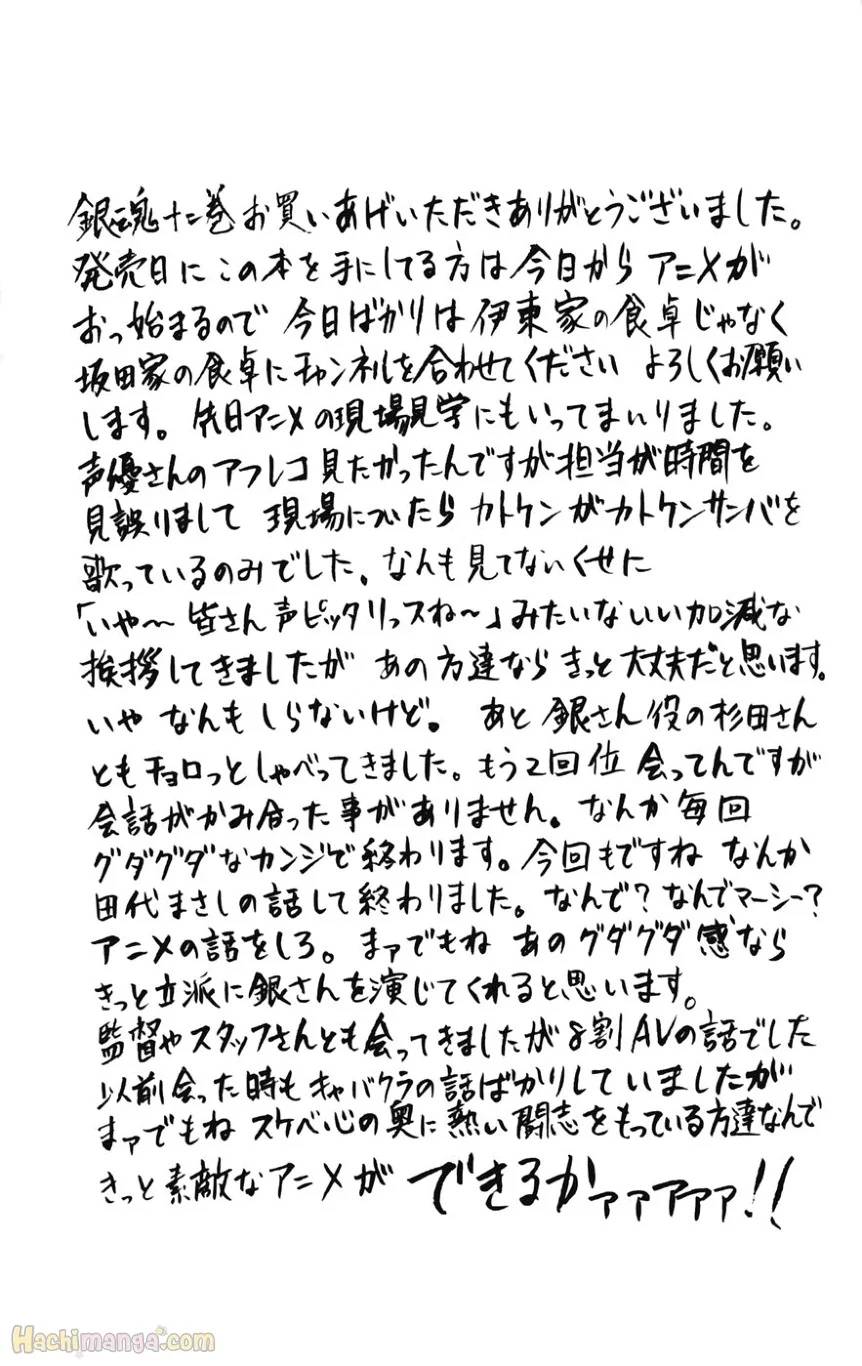 銀魂十二巻お買いあげいただきありがとうございました。
発売日にこの本を手にしてる方は今日からアニメが
おっ始まるので 今日ばかりは伊東家の食卓じゃなく
坂田家の食卓にチャンネルを合わせてください よろしくお願い
します。先日アニメの現場見学にもいってまいりました。
声優さんのアフレコ見たかったんですが担当が時間を
見誤りまして 現場についたらカトケンがカトケンサンバを
歌っているのみでした。なんも見てないくせに
「いや〜皆さん声ピッタリっスね〜」みたいないい加減な
挨拶してきましたが あの方達ならきっと大丈夫だと思います。
いや なんもしらないけど。 あと 銀さん役の杉田さん
ともチョロっとしゃべってきました。もう2回位 会ってんですが
会話がかみ合った事がありません。なんか毎回
グダグダなカンジで終わります。今回もですね なんか
田代まさしの話して終わりました。なんで?なんでマーシー?
アニメの話をしろ。まァでもね あのグダグダ感なら
きっと立派に銀さんを演じてくれると思います。
監督やスタッフさんとも会ってきましたが8割AVの話でした
以前会った時もキャバクラの話ばかりしていましたが
まァでもね スケベ心の奥に熱い闘志をもっている方達なんで
きっと素敵なアニメが できるかァァァァァ!!
Hachimanga.com